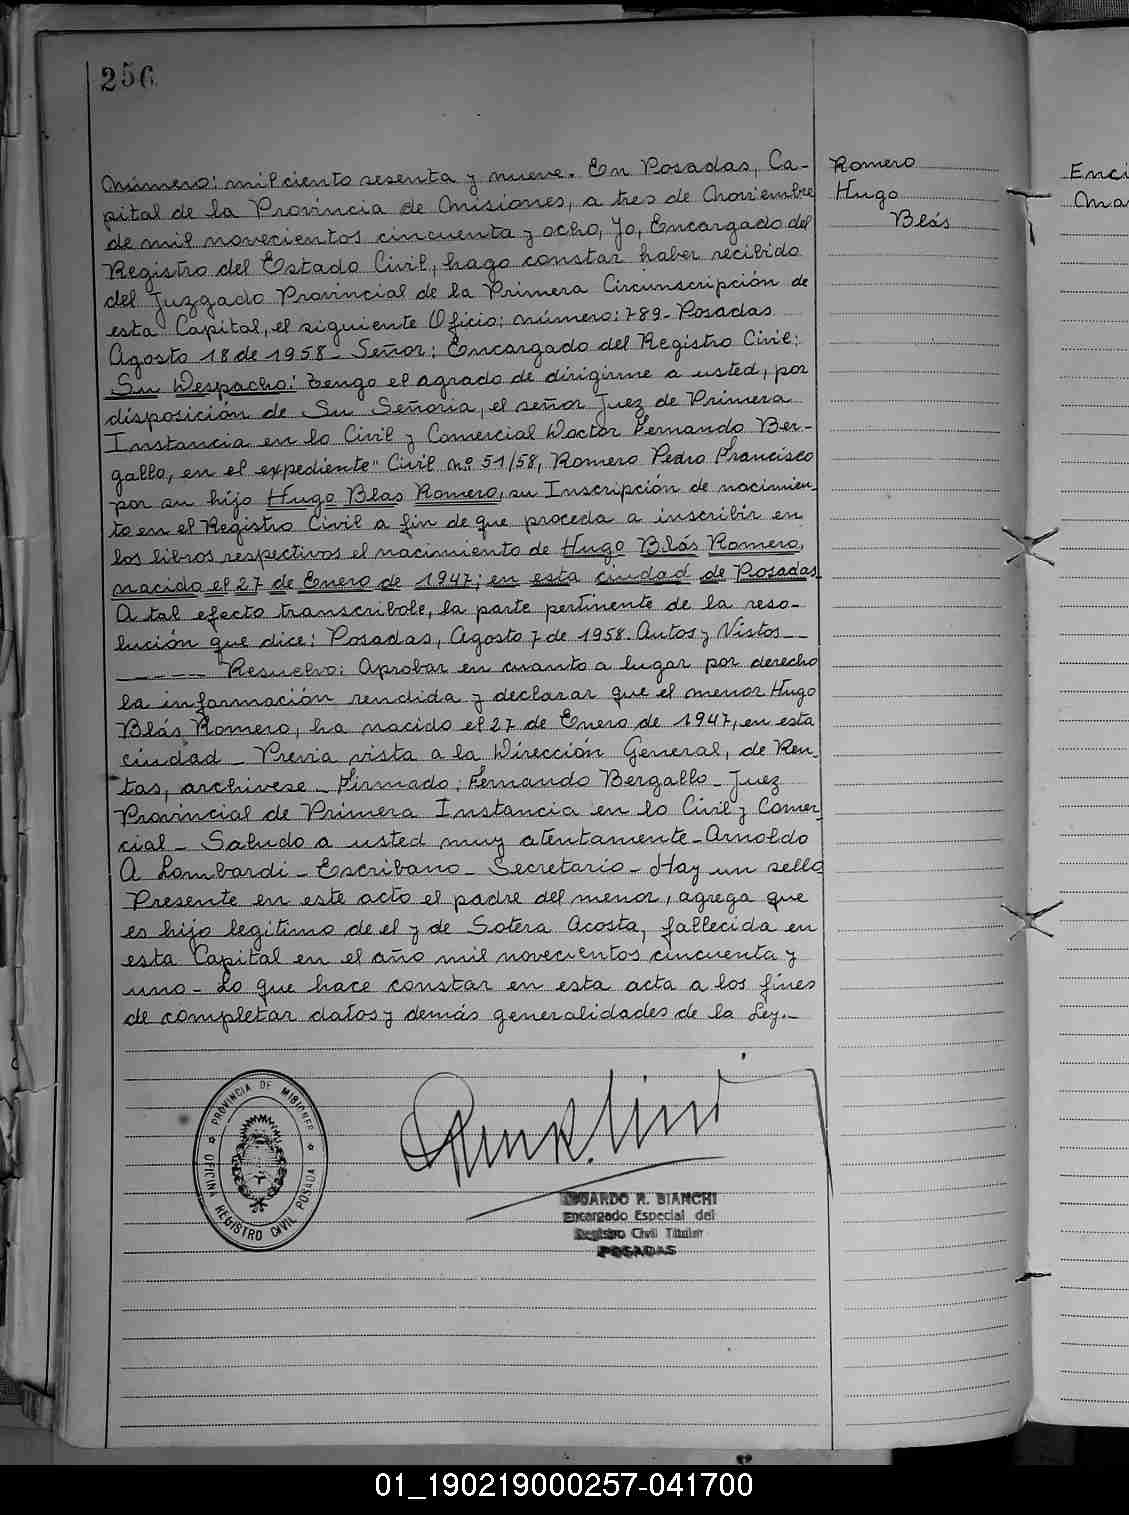 256
Número: mil ciento sesenta y nueve. En Posadas, Ca-
pital de la Provincia de Misiones, a tres de Noviembre
de mil novecientos cincuenta y ocho, Yo, Encargado del
Registro del Estado Civil, hago constar haber recibido
del Juzgado Provincial de la Primera Circunscripción de
esta Capital, el siguiente Oficio: número: 789- Posadas
Agosto 18 de 1958- Señor: Encargado del Registro Civil:
Su Despacho: Tengo el agrado de dirigirme a usted, por
disposición de Su Señoria, el señor Juez de Primera
Instancia en lo Civil y Comercial Doctor Fernando Ber-
gallo, en el expediente " Civil nº 51/58, Romero Pedro Francisco
por su hijo Hugo Blas Romero, su Inscripción de nacimien-
to en el Registro Civil a fin de que proceda a inscribir en
los libros respectivos el nacimiento de Hugo Blás Romero,
nacido el 27 de Enero de 1947; en esta ciudad de Posadas.
A tal efecto transcribole, la parte pertinente de la reso-
lución que dice: Posadas, Agosto 7 de 1958. Autos y Vistos__
_ _ _ _ _ Resuelvo: Aprobar en cuanto a lugar por derecho
la información rendida y declarar que el menor Hugo
Blás Romero, ha nacido el 27 de Enero de 1947, en esta
ciudad - Previa vista a la Dirección General, de Ren-
tas, archivese - Firmado: Fernando Bergallo - Juez
Provincial de Primera Instancia en lo Civil y Comer-
cial - Saludo a usted muy atentamente - Arnoldo
A Lombardi - Escribano - Secretario - Hay un sello
Presente en este acto el padre del menor, agrega que
es hijo legitimo de el y de Sotera Acosta, fallecida en
esta Capital en el año mil novecientos cincuenta y
uno - Lo que hace constar en esta acta a los fines
de completar datos y demás generalidades de la Ley.-
Romero
Hugo
Blás
Enci
Ma
PROVINCIA DE MISIONES
OFICINA REGISTRO CIVIL POSADA
EDUARDO R. BIANCHI
Encargado Especial del
Registro Civil Titular
POSADAS
01_190219000257-041700